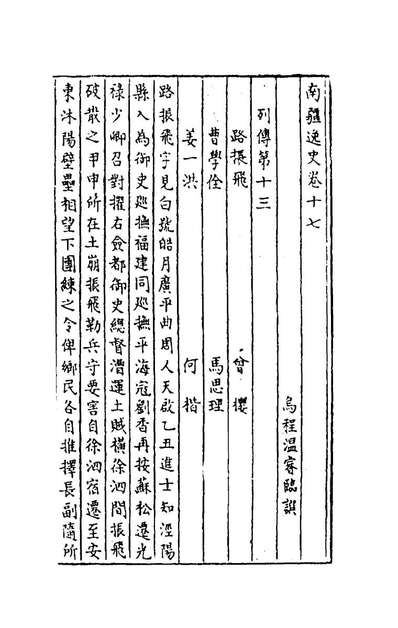 南疆逸史卷十七
烏程溫睿臨譔
列傳第十三
路振飛　曾櫻
曹學佺　馬思理
姜一洪　何楷
路振飛字見白號皓月廣平曲周人天啟乙丑進士知涇陽
縣入為御史廵撫福建同廵撫平海寇劉香再按蘇松遷光
祿少卿召對擢右僉都御史總督漕運土賊橫徐泗間振飛
破散之甲申所在土崩振飛勒兵守要害自徐泗宿遷至安
東沭陽壁壘相望下團練之令俾鄉民各自推擇長副隨所